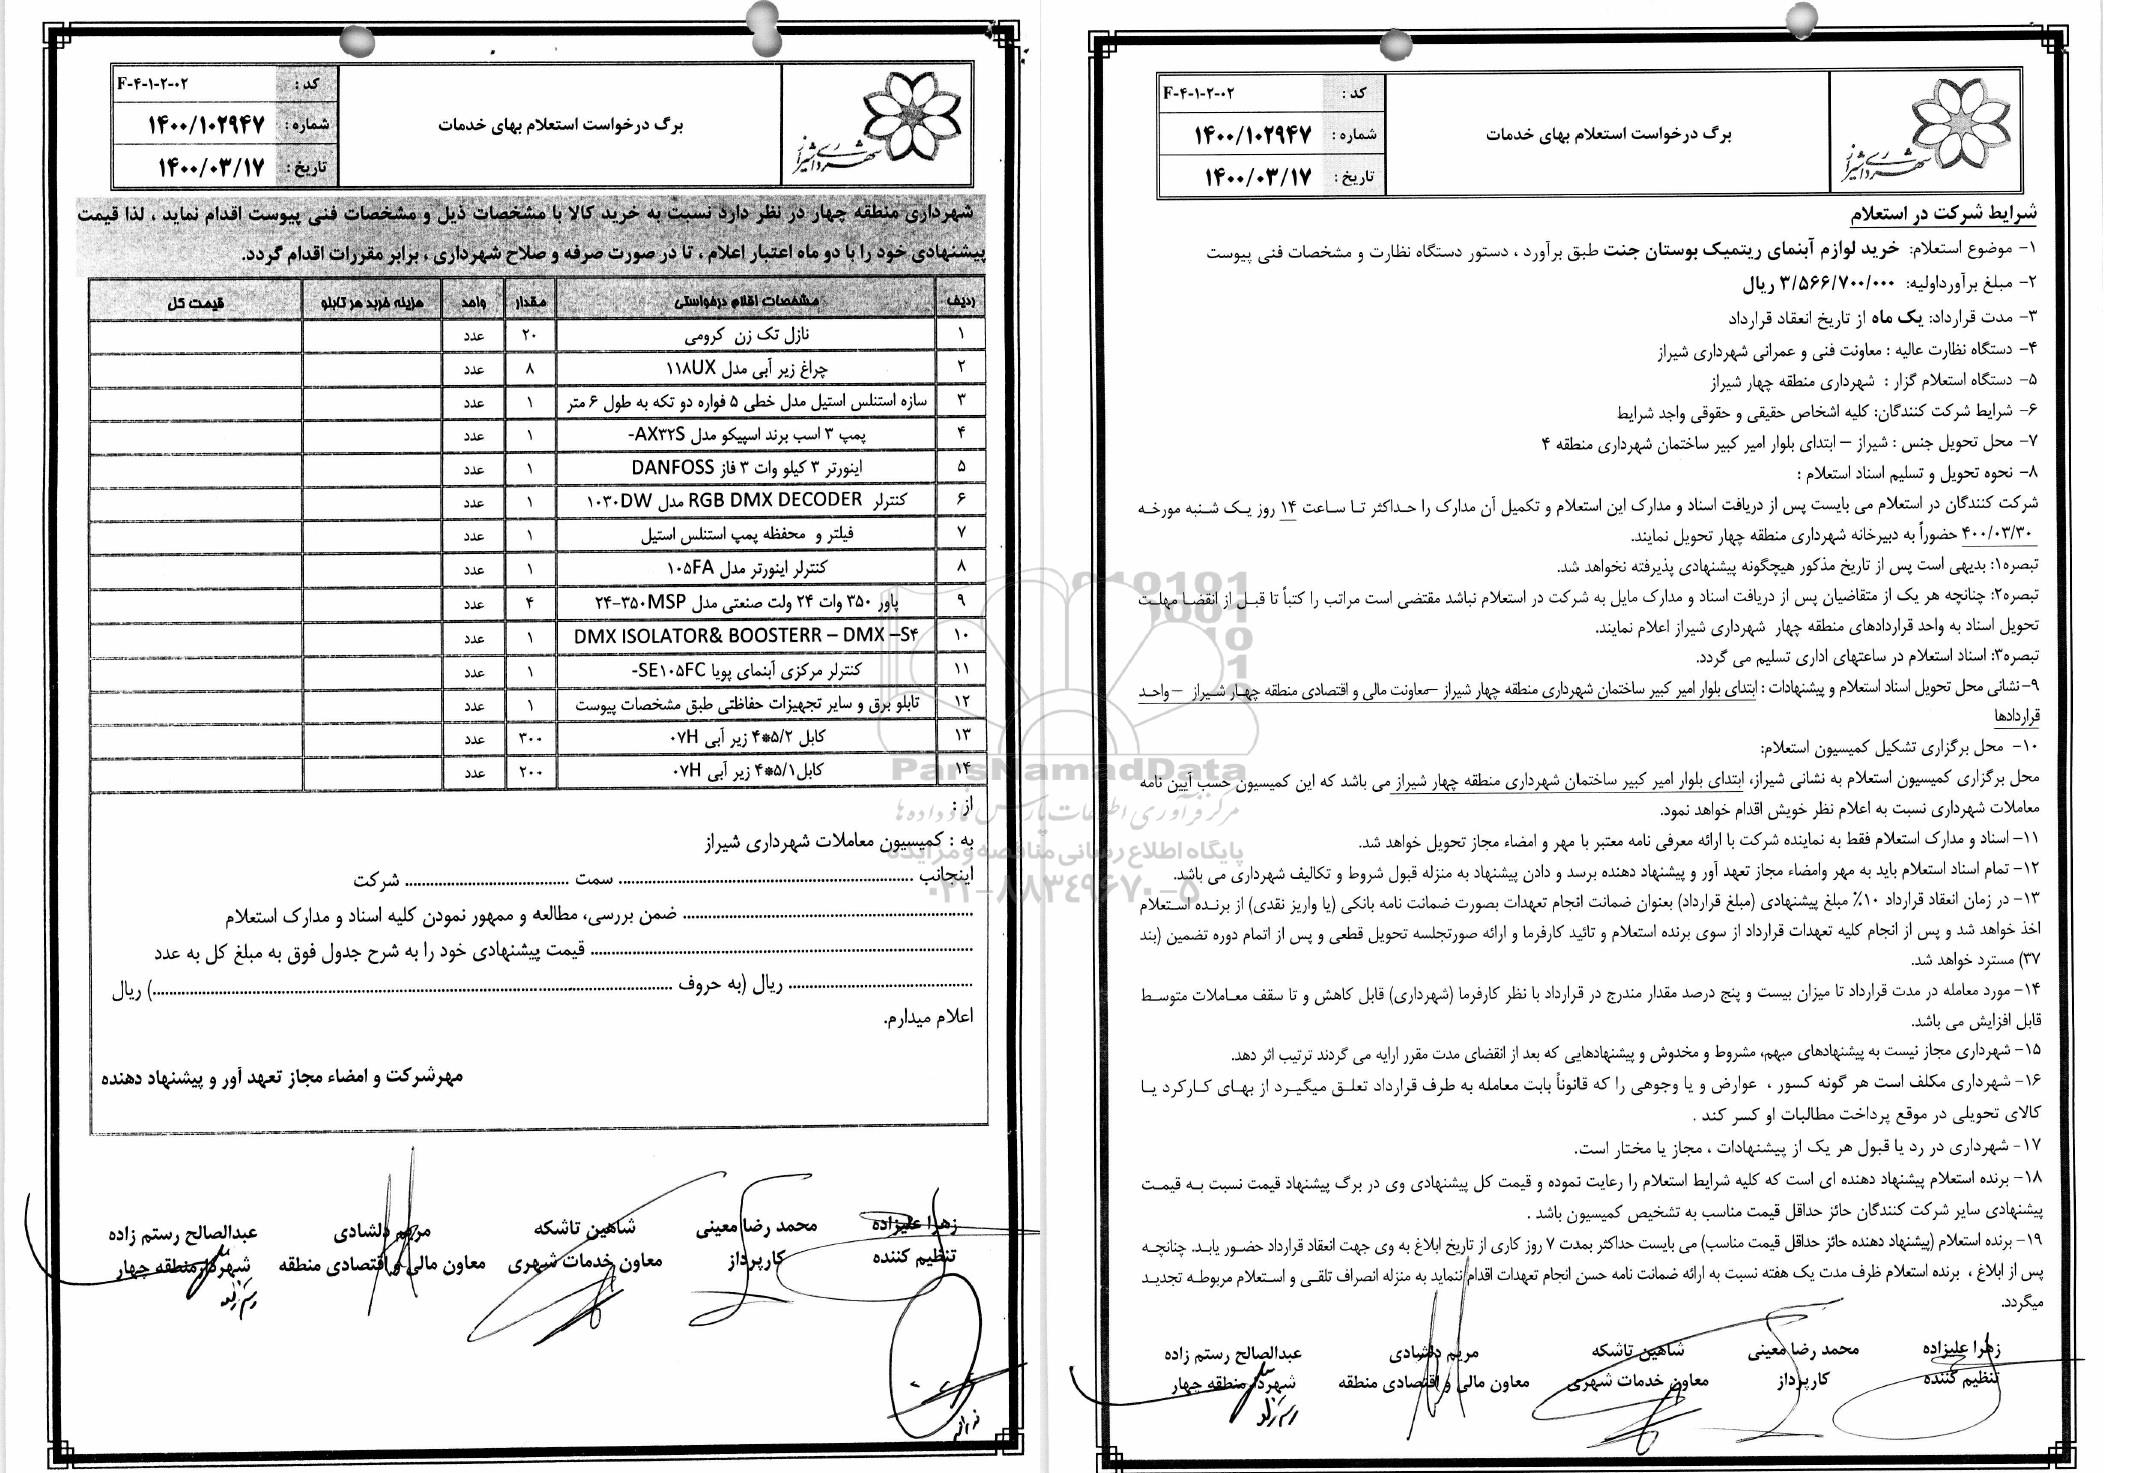 برگ درخواست استعلام بهای خدمات
کد : F-۴-۱-۲-۰۲
شماره : ۱۴۰۰/۱۰۲۹۴۷
تاریخ : ۱۴۰۰/۰۳/۱۷
شرایط شرکت در استعلام
۱- موضوع استعلام: خرید لوازم آبنمای ریتمیک بوستان جنت طبق برآورد ، دستور دستگاه نظارت و مشخصات فنی پیوست
۲- مبلغ برآورداولیه: ۳/۵۶۶/۷۰۰/۰۰۰ ریال
۳- مدت قرارداد: یک ماه از تاریخ انعقاد قرارداد
۴- دستگاه نظارت عالیه : معاونت فنی و عمرانی شهرداری شیراز
۵- دستگاه استعلام گزار : شهرداری منطقه چهار شیراز
۶- شرایط شرکت کنندگان: کلیه اشخاص حقیقی و حقوقی واجد شرایط
۷- محل تحویل جنس : شیراز – ابتدای بلوار امیر کبیر ساختمان شهرداری منطقه ۴
۸- نحوه تحویل و تسلیم اسناد استعلام :
شرکت کنندگان در استعلام می بایست پس از دریافت اسناد و مدارک این استعلام و تکمیل آن مدارک را حداکثر تا ساعت ۱۴ روز یک شنبه مورخه
۴۰۰/۰۳/۳۰ حضوراً به دبیرخانه شهرداری منطقه چهار تحویل نمایند.
تبصره۱: بدیهی است پس از تاریخ مذکور هیچگونه پیشنهادی پذیرفته نخواهد شد.
تبصره۲: چنانچه هر یک از متقاضیان پس از دریافت اسناد و مدارک مایل به شرکت در استعلام نباشد مقتضی است مراتب را کتباً تا قبل از انقضا مهلت
تحویل اسناد به واحد قراردادهای منطقه چهار شهرداری شیراز اعلام نمایند.
تبصره۳: اسناد استعلام در ساعتهای اداری تسلیم می گردد.
۹-نشانی محل تحویل اسناد استعلام و پیشنهادات : ابتدای بلوار امیر کبیر ساختمان شهرداری منطقه چهار شیراز –معاونت مالی و اقتصادی منطقه چهار شیراز –واحد
قراردادها
۱۰- محل برگزاری تشکیل کمیسیون استعلام:
محل برگزاری کمیسیون استعلام به نشانی شیراز، ابتدای بلوار امیر کبیر ساختمان شهرداری منطقه چهار شیراز می باشد که این کمیسیون حسب آیین نامه
معاملات شهرداری نسبت به اعلام نظر خویش اقدام خواهد نمود.
۱۱- اسناد و مدارک استعلام فقط به نماینده شرکت با ارائه معرفی نامه معتبر با مهر و امضاء مجاز تحویل خواهد شد.
۱۲- تمام اسناد استعلام باید به مهر وامضاء مجاز تعهد آور و پیشنهاد دهنده برسد و دادن پیشنهاد به منزله قبول شروط و تکالیف شهرداری می باشد.
۱۳- در زمان انعقاد قرارداد ۱۰٪ مبلغ پیشنهادی (مبلغ قرارداد) بعنوان ضمانت انجام تعهدات بصورت ضمانت نامه بانکی (یا واریز نقدی) از برنده استعلام
اخذ خواهد شد و پس از انجام کلیه تعهدات قرارداد از سوی برنده استعلام و تائید کارفرما و ارائه صورتجلسه تحویل قطعی و پس از اتمام دوره تضمین (بند
۳۷) مسترد خواهد شد.
۱۴- مورد معامله در مدت قرارداد تا میزان بیست و پنج درصد مقدار مندرج در قرارداد با نظر کارفرما (شهرداری) قابل کاهش و تا سقف معاملات متوسط
قابل افزایش می باشد.
۱۵- شهرداری مجاز نیست به پیشنهادهای مبهم، مشروط و مخدوش و پیشنهادهایی که بعد از انقضای مدت مقرر ارایه می گردند ترتیب اثر دهد.
۱۶- شهرداری مکلف است هر گونه کسور ، عوارض و یا وجوهی را که قانوناً بابت معامله به طرف قرارداد تعلق میگیرد از بهای کارکرد یا
کالای تحویلی در موقع پرداخت مطالبات او کسر کند .
۱۷- شهرداری در رد یا قبول هر یک از پیشنهادات ، مجاز یا مختار است.
۱۸- برنده استعلام پیشنهاد دهنده ای است که کلیه شرایط استعلام را رعایت نموده و قیمت کل پیشنهادی وی در برگ پیشنهاد قیمت نسبت به قیمت
پیشنهادی سایر شرکت کنندگان حائز حداقل قیمت مناسب به تشخیص کمیسیون باشد .
۱۹- برنده استعلام (پیشنهاد دهنده حائز حداقل قیمت مناسب) می بایست حداکثر بمدت ۷ روز کاری از تاریخ ابلاغ به وی جهت انعقاد قرارداد حضور یابد. چنانچه
پس از ابلاغ ، برنده استعلام ظرف مدت یک هفته نسبت به ارائه ضمانت نامه حسن انجام تعهدات اقدام ننماید به منزله انصراف تلقی و استعلام مربوطه تجدید
میگردد.
زهرا علیزاده محمد رضا معینی شاهین تاشکه مریم دلشادی عبدالصالح رستم زاده
تنظیم کننده کارپرداز معاون خدمات شهری معاون مالی و اقتصادی منطقه شهردار منطقه چهار
برگ درخواست استعلام بهای خدمات
کد : F-۴-۱-۲-۰۲
شماره : ۱۴۰۰/۱۰۲۹۴۷
تاریخ : ۱۴۰۰/۰۳/۱۷
شهرداری منطقه چهار در نظر دارد نسبت به خرید کالا با مشخصات ذیل و مشخصات فنی پیوست اقدام نماید ، لذا قیمت
پیشنهادی خود را با دو ماه اعتبار اعلام ، تا در صورت صرفه و صلاح شهرداری ، برابر مقررات اقدام گردد.
ردیف مشخصات اقلام درخواستی مقدار واحد هزینه خرید هر تابلو قیمت کل
۱ نازل تک زن کرومی ۲۰ عدد
۲ چراغ زیر آبی مدل ۱۱۸UX ۸ عدد
۳ سازه استنلس استیل مدل خطی ۵ فواره دو تکه به طول ۶ متر ۱ عدد
۴ پمپ ۳ اسب برند اسپیکو مدل AX۳۲S- ۱ عدد
۵ اینورتر ۳ کیلو وات ۳ فاز DANFOSS ۱ عدد
۶ کنترلر RGB DMX DECODER مدل ۱۰۳۰DW ۱ عدد
۷ فیلتر و محفظه پمپ استنلس استیل ۱ عدد
۸ کنترلر اینورتر مدل ۱۰۵FA ۱ عدد
۹ پاور ۳۵۰ وات ۲۴ ولت صنعتی مدل ۲۴-۳۵۰MSP ۴ عدد
۱۰ DMX ISOLATOR& BOOSTERR – DMX –S۴ ۱ عدد
۱۱ کنترلر مرکزی آبنمای پویا SE۱۰۵FC- ۱ عدد
۱۲ تابلو برق و سایر تجهیزات حفاظتی طبق مشخصات پیوست ۱ عدد
۱۳ کابل ۴*۵/۲ زیر آبی ۰۷H ۳۰۰ عدد
۱۴ کابل۴*۵/۱ زیر آبی ۰۷H ۲۰۰ عدد
از :
به : کمیسیون معاملات شهرداری شیراز
اینجانب ........ سمت ........ شرکت
........ ضمن بررسی، مطالعه و ممهور نمودن کلیه اسناد و مدارک استعلام
........ قیمت پیشنهادی خود را به شرح جدول فوق به مبلغ کل به عدد
........ ریال (به حروف ........) ریال
اعلام میدارم.
مهرشرکت و امضاء مجاز تعهد آور و پیشنهاد دهنده
زهرا علیزاده محمد رضا معینی شاهین تاشکه مریم دلشادی عبدالصالح رستم زاده
تنظیم کننده کارپرداز معاون خدمات شهری معاون مالی و اقتصادی منطقه شهردار منطقه چهار
ParsNamadData
مرکز فرآوری اطلاعات پارس نماد داده ها
پایگاه اطلاع رسانی مناقصه و مزایده
۰۲۱-۸۸۳۴۹۶۷۰-۵